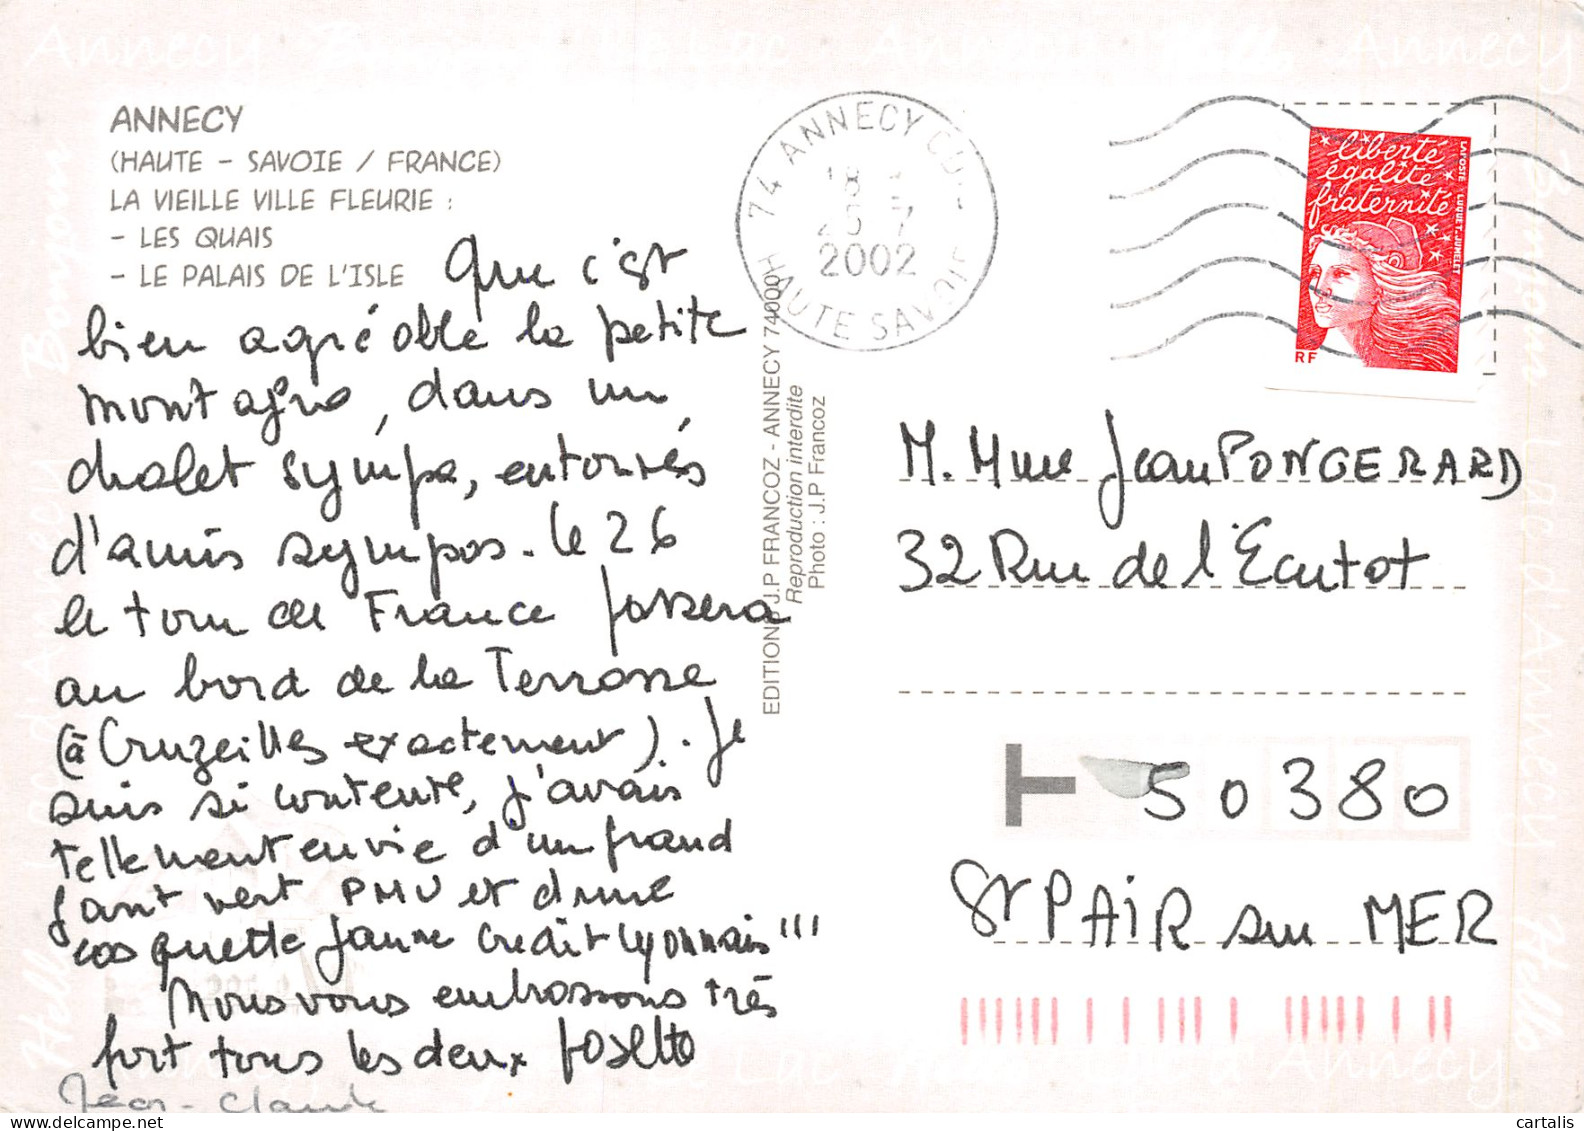 ANNECY
(HAUTE - SAVOIE / FRANCE)
LA VIEILLE VILLE FLEURIE :
- LES QUAIS
- LE PALAIS DE L'ISLE
Que c'est
bien agréable la petite
montagne, dans un
chalet sympa, entourés
d'amis sympas. Le 26
le tour de France passera
au bord de la Terrasse
(à Cruzeilles exactement). Je
suis si contente, j'avais
tellement envie d'un grand
gant vert PMU et d'une
casquette jaune Crédit Lyonnais !!!
Nous vous embrassons très
fort tous les deux Josette
Jean-Claude
EDITIONS J.P FRANCOZ - ANNECY 74000
Reproduction interdite
Photo : J.P Francoz
74 ANNECY
18
25 7
2002
HAUTE SAVOIE
liberté
égalité
fraternité
LA POSTE LUQUET. JUMELET
RF
M. Mme Jean PONGERARD
32 Rue de l'Ecutot
T 50380
St PAIR sur MER
Annecy
Hello
Bonjour
Bonjour
d'Annecy
Hello
d'Annecy
cartalis